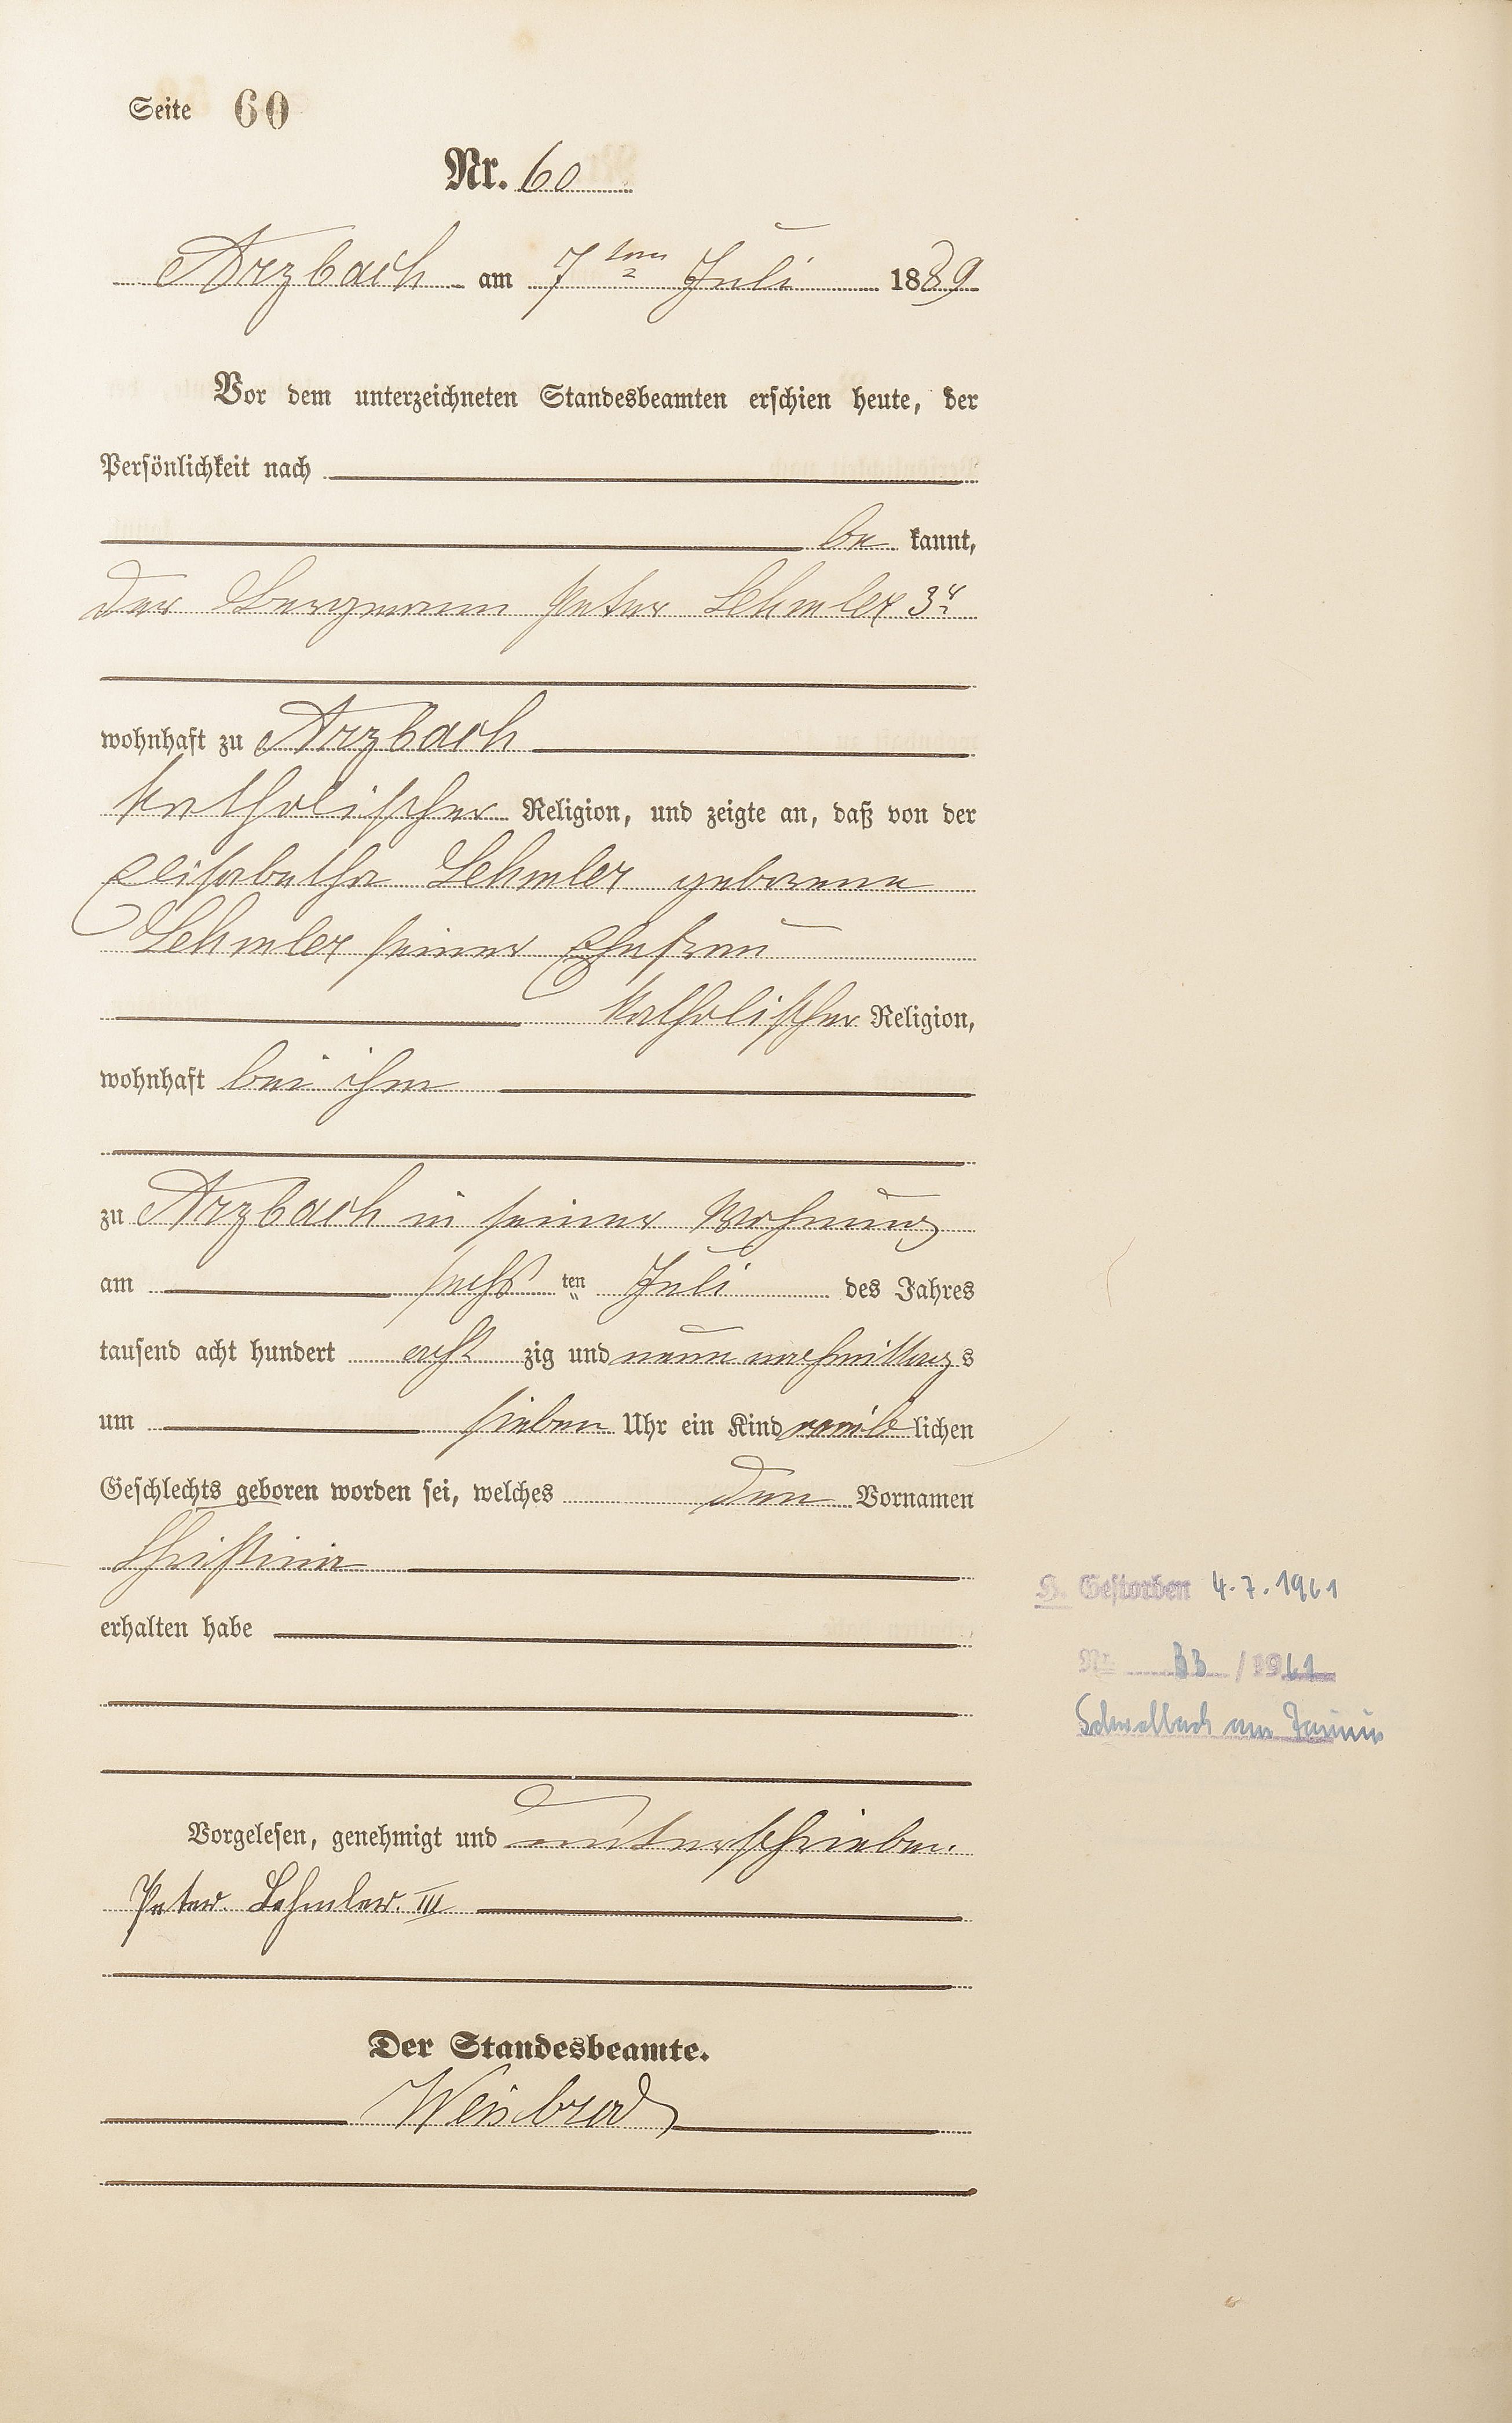 Seite 60
Nr. 60
Arzbach am 7ten Juli 1889
Vor dem unterzeichneten Standesbeamten erschien heute, der
Persönlichkeit nach
be kannt,
der Bergmann Peter Lehmler 3r
wohnhaft zu Arzbach
katholischer Religion, und zeigte an, daß von der
Elisabetha Lehmler geborene
Lehmler seiner Ehefrau
katholischer Religion,
wohnhaft bei ihm
zu Arzbach in seiner Wohnung
am sechs ten Juli des Jahres
tausend acht hundert acht zig und neun nachmittags
um sieben Uhr ein Kind weib lichen
Geschlechts geboren worden sei, welches den Vornamen
Christina
erhalten habe
H. Gestorben 4.7.1961
Nr. 33 / 1961
Schwalbach am Taunus
Vorgelesen, genehmigt und unterschrieben.
Peter Lehmler. III
Der Standesbeamte.
Weisbrod